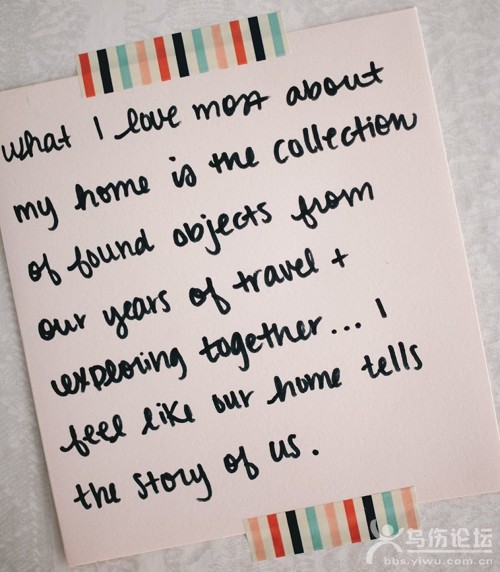 what I love most about
my home is the collection
of found objects from
our years of travel +
exploring together... I
feel like our home tells
the story of us.
乌伤论坛
bbs.yiwu.com.cn